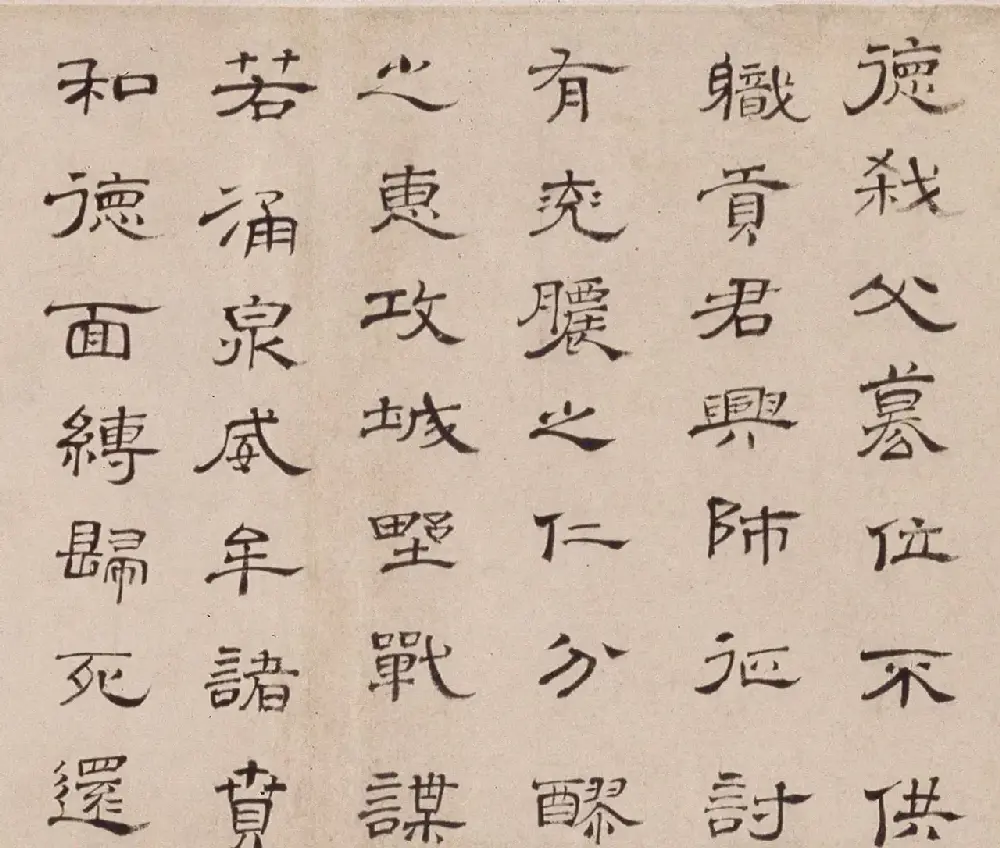 德弒父篡位不供
職貢君興師征討
有兖膿之仁分醪
之惠攻城野戰謀
若涌泉威牟諸賁
和德面縛歸死還